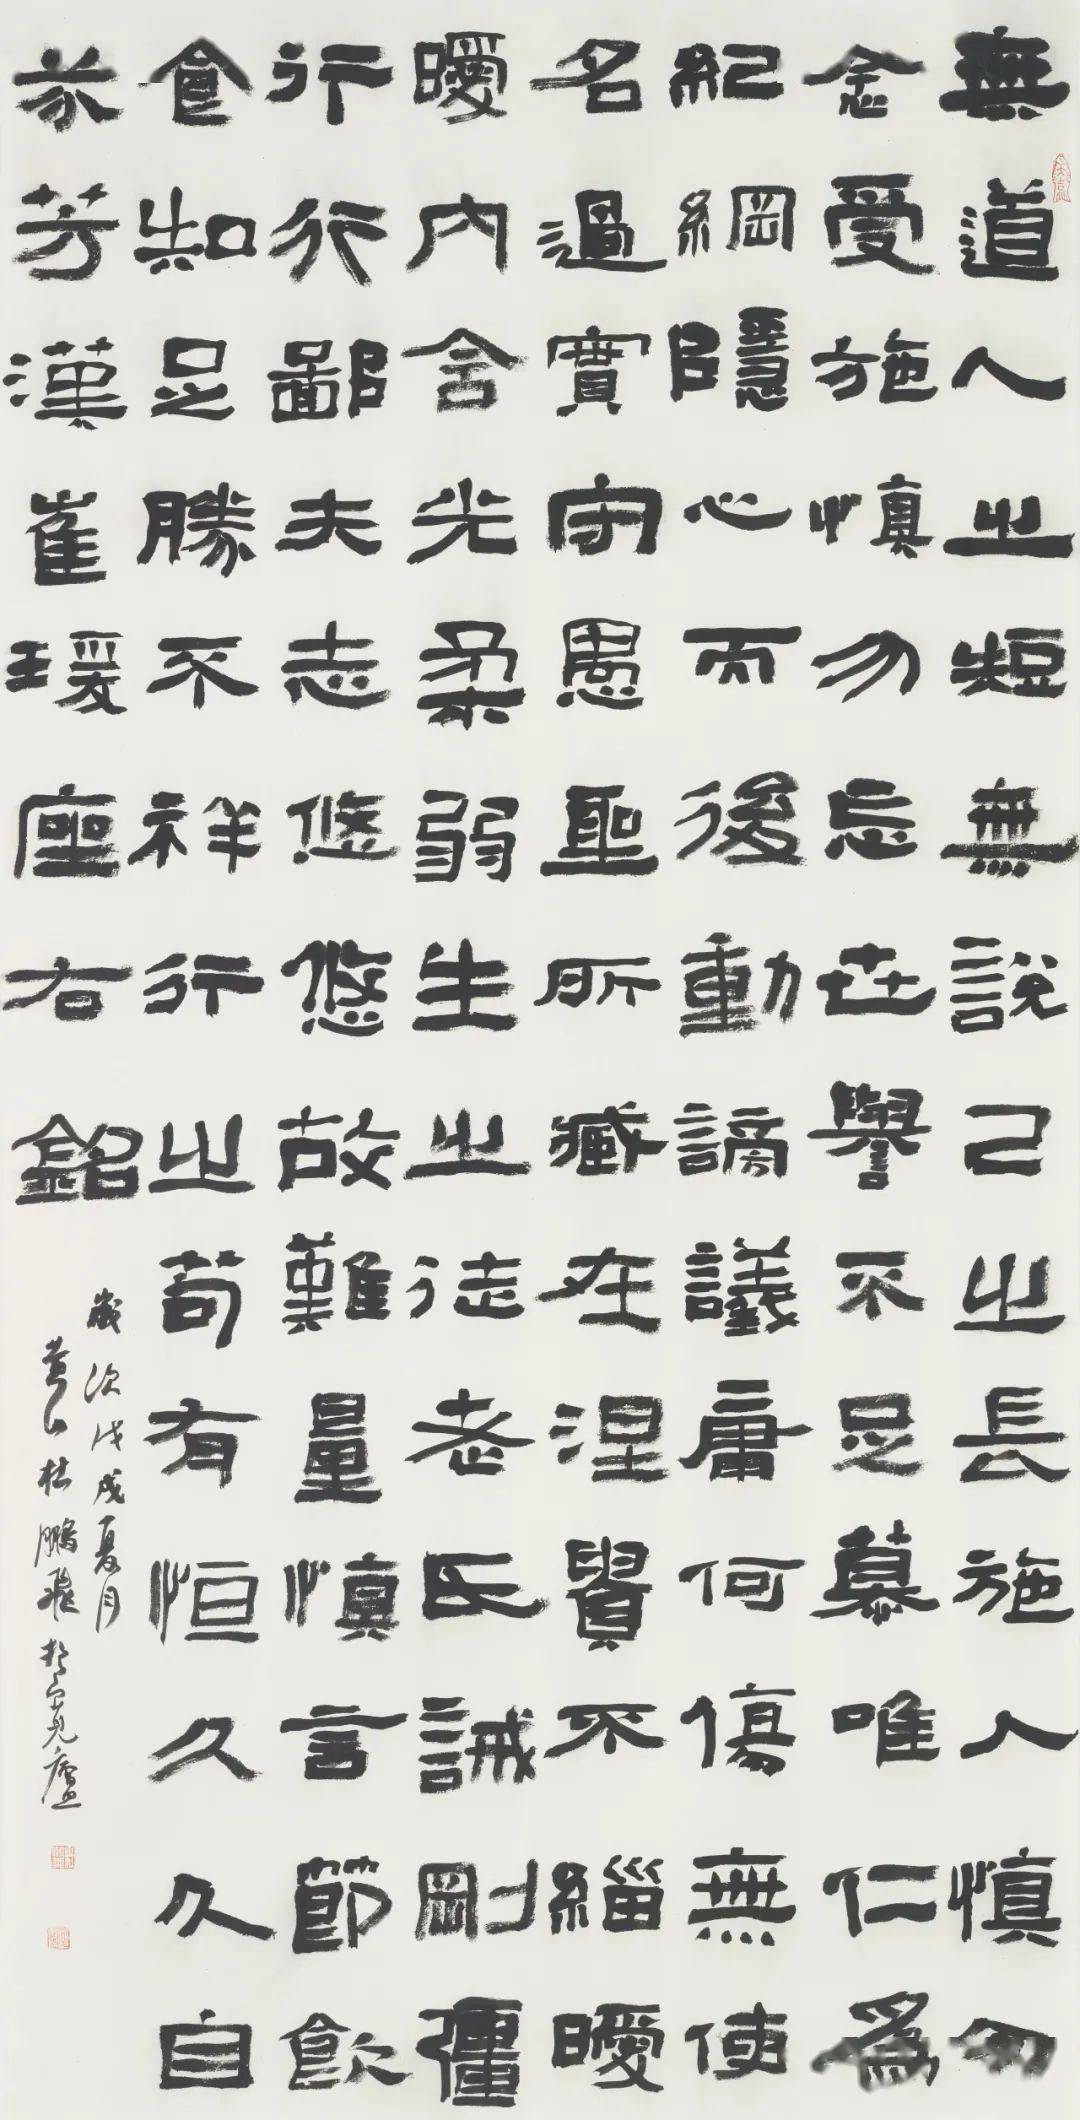 無道人之短無說己之長施人慎勿
念受施慎勿忘世譽不足慕唯仁爲
紀綱隱心而後動謗議庸何傷無使
名過實守愚聖所臧在涅貴不緇曖
曖內含光柔弱生之徒老氏誡剛彊
行行鄙夫志悠悠故難量慎言節飲
食知足勝不祥行之苟有恒久久自
芬芳漢崔瑗座右銘
歲次戊戌夏月
黃山杜鵬飛於廬